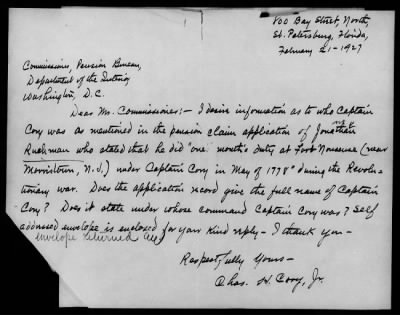 800 Bay Street, North,
St. Petersburg, Florida,
February 21-1927
Commissioner, Pension Bureau,
Department of the Interior
Washington, D.C.
Dear Mr. Commissioner:- I desire information as to who Captain
Cory was as mentioned in the pension claim application of Jonathan
Ruckman who stated that he did "one month's duty at Fort Nonsense (near
Morristown, N.J.) under Captain Cory in May of 1778" during the Revolu-
tionary war. Does the application record give the full name of Captain
Cory? Does it state under whose command Captain Cory was? Self
addressed envelope is enclosed for your kind reply - I thank you -
envelope returned
Respectfully Yours -
Chas. H. Cory, Jr.